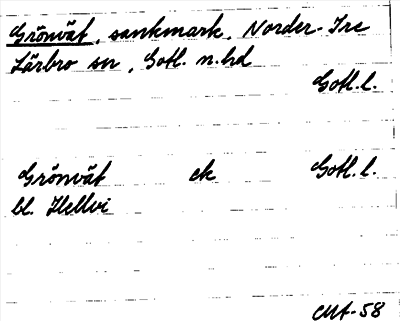 Grönvät, sankmark, Norder-Ire
Lärbro sn, Gotl. n.hd
Gotl.l.
Grönvät ek Gotl.l.
bl. Hellvi
-58